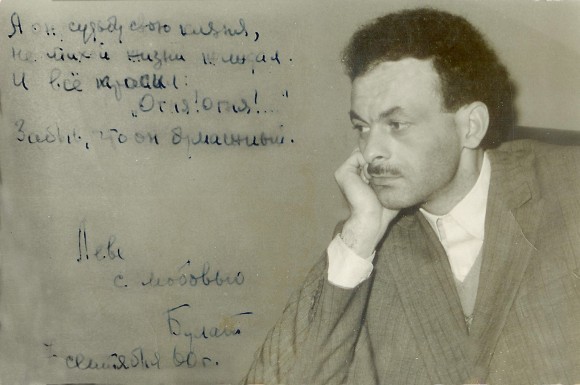 А он, судьбу свою кляня,
не тихой жизни жаждал.
И всё просил:
„Огня! Огня!...."
Забыв, что он бумажный.
Леве
с любовью
Булат
7 сентября 60 г.